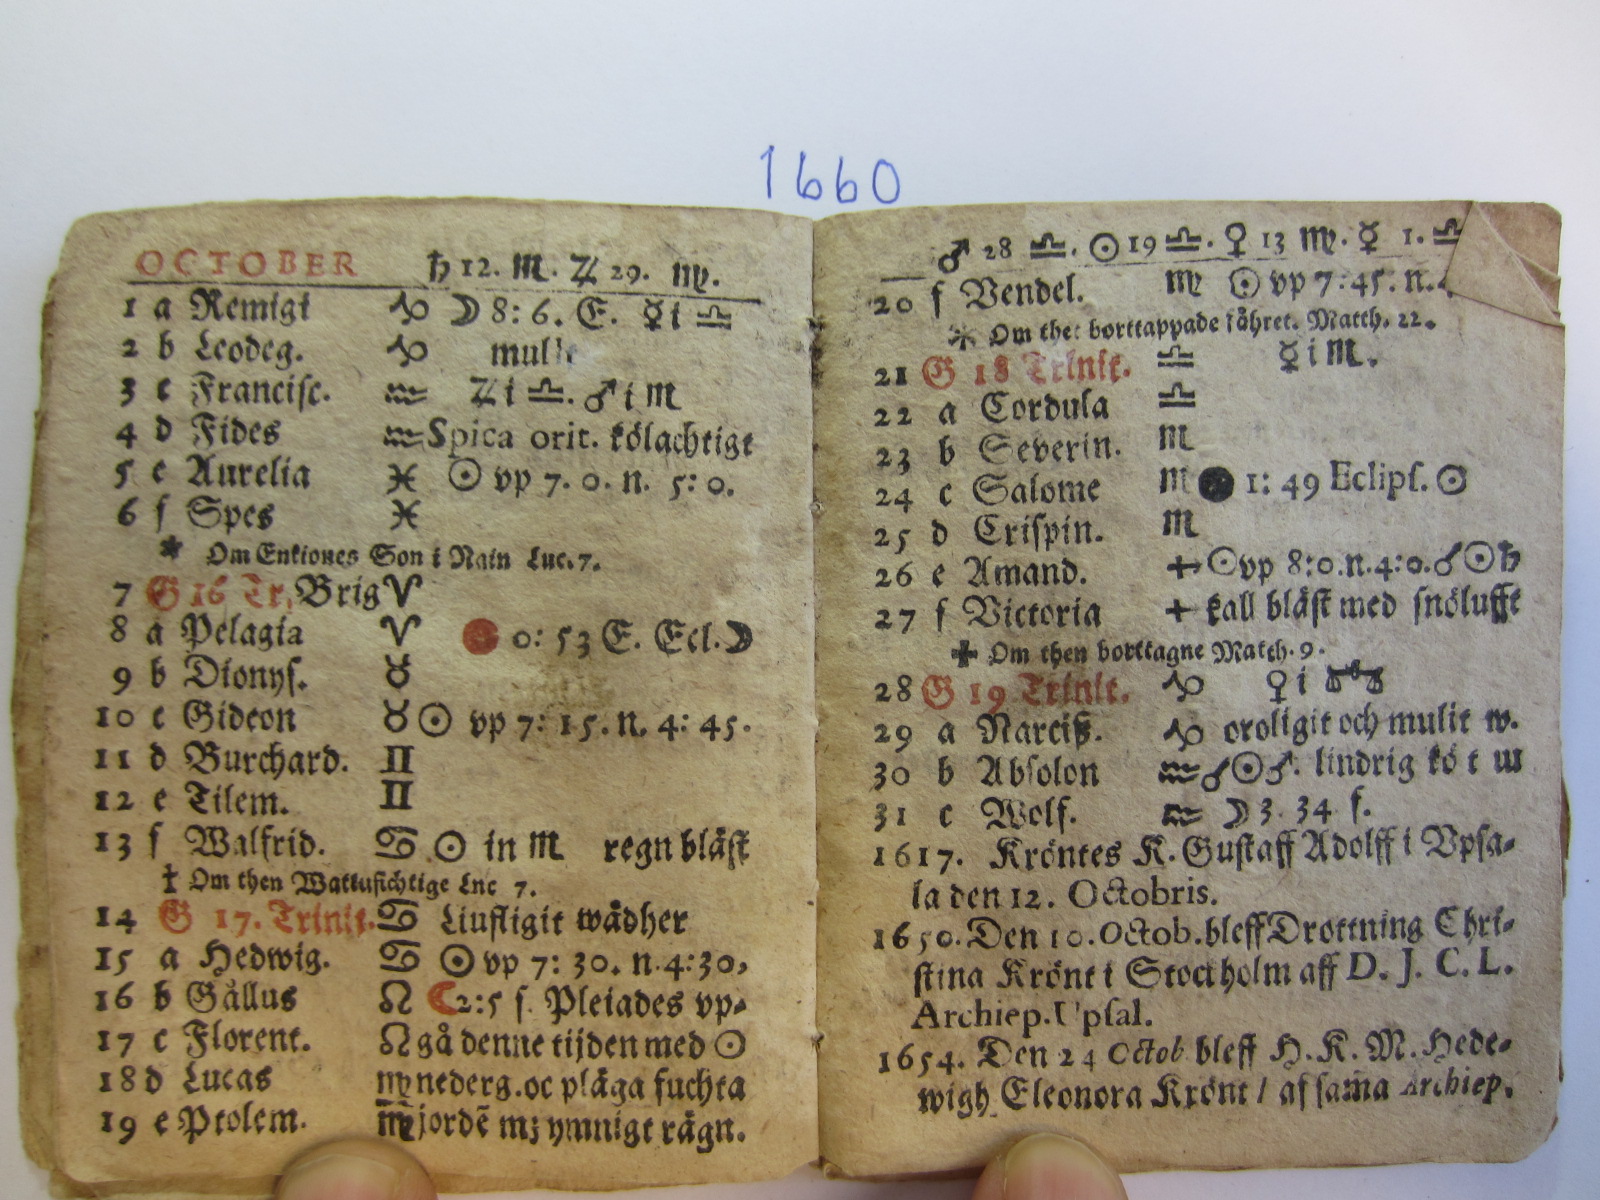 1660
OCTOBER ♄ 12. ♏. ♃ 29. ♍.
1 a Remigi ♑ ☽ 8: 6. E. ☿ i ♎
2 b Leodeg. ♑ mulit
3 c Francisc. ♒ ♃ i ♎. ♂ i ♏
4 d Fides ♒ Spica orit. kölachtigt
5 e Aurelia ♓ ☉ vp 7. 0. n. 5: 0.
6 f Spes ♓
* Om Enkiones Son i Nain Luc. 7.
7 G 16 Tr, Brig ♈
8 a Pelagia ♈ 0: 53 E. Ecl. ☽
9 b Dionyſ. ♉
10 c Gideon ♉ ☉ vp 7: 15. n. 4: 45.
11 d Burchard. ♊
12 e Tilem. ♊
13 f Walfrid. ♋ ☉ in ♏ regn bläſt
† Om then Wattuſichtige Luc 7.
14 G 17. Trinit. ♋ Liufligit wädher
15 a Hedwig. ♋ ☉ vp 7: 30. n. 4: 30,
16 b Gållus ♌ ☾ 2: 5 f. Pleiades vp-
17 c Florent. ♌ gå denne tijden med ☉
18 d Lucas ♍ nederg. oc pläga fuchta
19 e Ptolem. ♍ jordē mz ymnigt rägn.
♂ 28 ♎. ☉ 19 ♎. ♀ 13 ♍. ☿ 1. ♎
20 f Vendel. ♍ ☉ vp 7: 45. n.
* Om thet borttappade fåhret. Matth. 22.
21 G 18 Trinit. ♎ ☿ i ♏.
22 a Cordula ♎
23 b Severin. ♏
24 c Salome ♏ ● 1: 49 Eclipſ. ☉
25 d Criſpin. ♏
26 e Amand. ♐ ☉ vp 8: 0. n. 4: 0. ☌ ☉ ♄
27 f Victoria ♐ kall bläſt med ſnölufft
✚ Om then borttagne Matth. 9.
28 G 19 Trinit. ♑ ♀ i ♎
29 a Narciß. ♑ oroligit och mulit w.
30 b Abſolon ♒ ☌ ☉ ♂. lindrig kö t w
31 c Wolf. ♒ ☽ 3 34 f.
1617. Kröntes K. Guſtaff Adolff i Vpſa-
la den 12. Octobris.
1650. Den 10. Octob. bleff Drottning Chri-
ſtina Krönt i Stockholm aff D. J. C. L.
Archiep. Upſal.
1654. Den 24 Octob bleff H. K. M. Hede-
wigh Eleonora Krönt / af ſama Archiep.